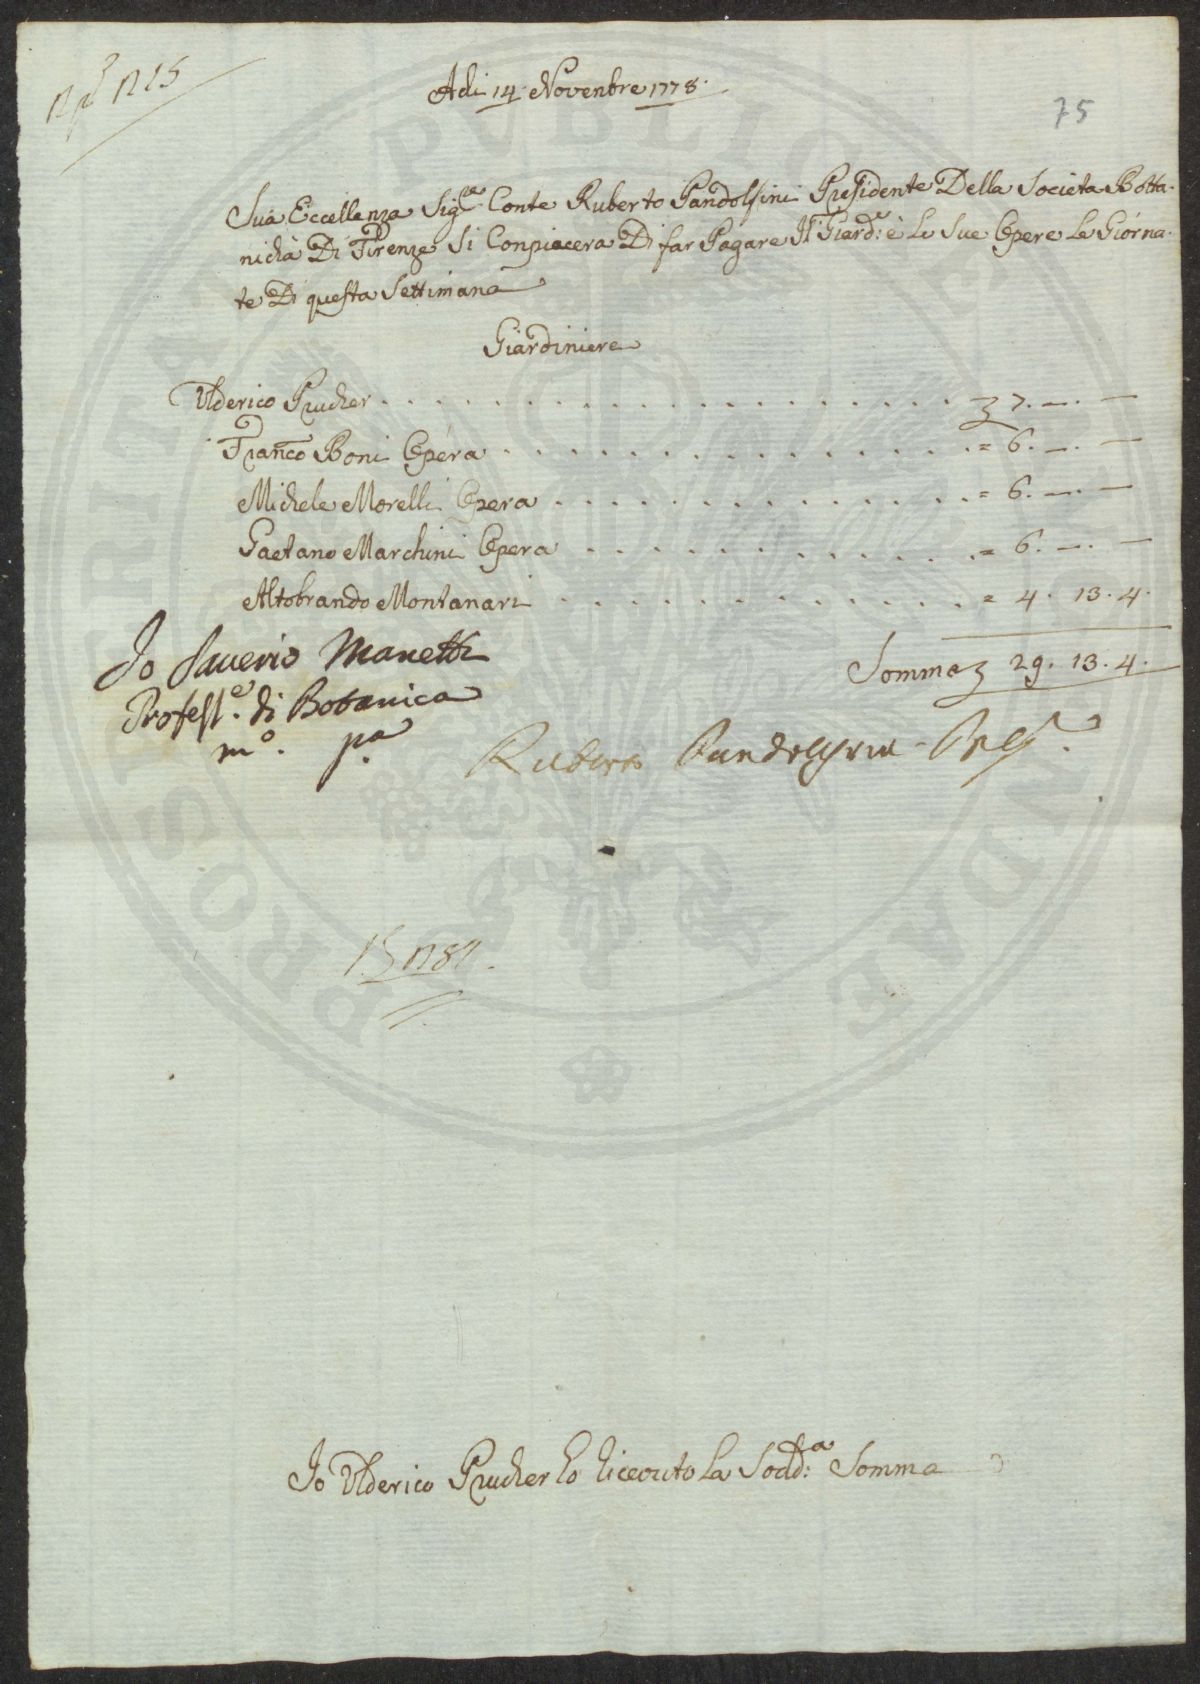 Adi 14. Novenbre 1778.
75
Sua Eccellenza Sig.ᵉ Conte Ruberto Pandolfini Presidente Della Società Botta-
nicha Di Firenze Si Conpiacera Di far Pagare Il Giard.ᵉ è Le Sue Opere Le Giorna-
te Di questa Settimana
Giardiniere
Vlderico Prucher . . . . . . . . . . 7. —. —
Franco Boni Opera . . . . . . . . . . = 6. —. —
Michele Morelli Opera . . . . . . . . . . = 6. —. —
Gaetano Marchini Opera . . . . . . . . . . = 6. —. —
Altobrando Montanari . . . . . . . . . . = 4. 13. 4.
Somma 29. 13. 4.
Io Saverio Manetti
Profess.ᵉ di Botanica
mº. pª
Ruberto Pandolfini Pres.
Io Vlderico Prucher ho riceuto la Sodd.ª Somma
PROSPERITATI PVBLICAE AVGENDAE